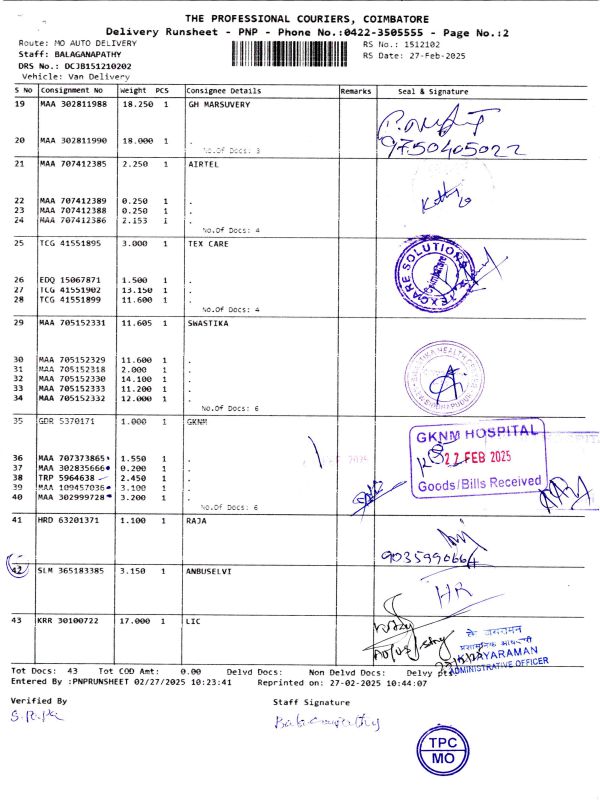 THE PROFESSIONAL COURIERS, COIMBATORE
Delivery Runsheet - PNP - Phone No.:0422-3505555 - Page No.:2
Route: MO AUTO DELIVERY RS No.: 1512102
Staff: BALAGANAPATHY RS Date: 27-Feb-2025
DRS No.: DCJB151210202
Vehicle: Van Delivery
S No Consignment No Weight PCS Consignee Details Remarks Seal & Signature
19 MAA 302811988 18.250 1 GH MARSUVERY
20 MAA 302811990 18.000 1 .
No.Of Docs: 3
9750405022
21 MAA 707412385 2.250 1 AIRTEL
22 MAA 707412389 0.250 1 .
23 MAA 707412388 0.250 1 .
24 MAA 707412386 2.153 1 .
No.Of Docs: 4
25 TCG 41551895 3.000 1 TEX CARE
26 EDQ 15067871 1.500 1 .
27 TCG 41551902 13.150 1 .
28 TCG 41551899 11.600 1 .
No.Of Docs: 4
TEXCARE SOLUTIONS
Coimbatore
29 MAA 705152331 11.605 1 SWASTIKA
30 MAA 705152329 11.600 1 .
31 MAA 705152318 2.000 1 .
32 MAA 705152330 14.100 1 .
33 MAA 705152333 11.200 1 .
34 MAA 705152332 12.000 1 .
No.Of Docs: 6
35 GDR 5370171 1.000 1 GKNM
36 MAA 707373865 1.550 1 .
37 MAA 302835666 0.200 1 .
38 TRP 5964638 2.450 1 .
39 MAA 109457036 3.100 1 .
40 MAA 302999728 3.200 1 .
No.Of Docs: 6
GKNM HOSPITAL
22 FEB 2025
Goods/Bills Received
41 HRD 63201371 1.100 1 RAJA
9035990664
42 SLM 365183385 3.150 1 ANBUSELVI
HR
43 KRR 30100722 17.000 1 LIC
के जयरामन
प्रशासनिक अधिकारी
K JAYARAMAN
ADMINISTRATIVE OFFICER
Tot Docs: 43 Tot COD Amt: 0.00 Delvd Docs: Non Delvd Docs: Delvy
Entered By :PNPRUNSHEET 02/27/2025 10:23:41 Reprinted on: 27-02-2025 10:44:07
Verified By Staff Signature
Balaganapathy
TPC
MO